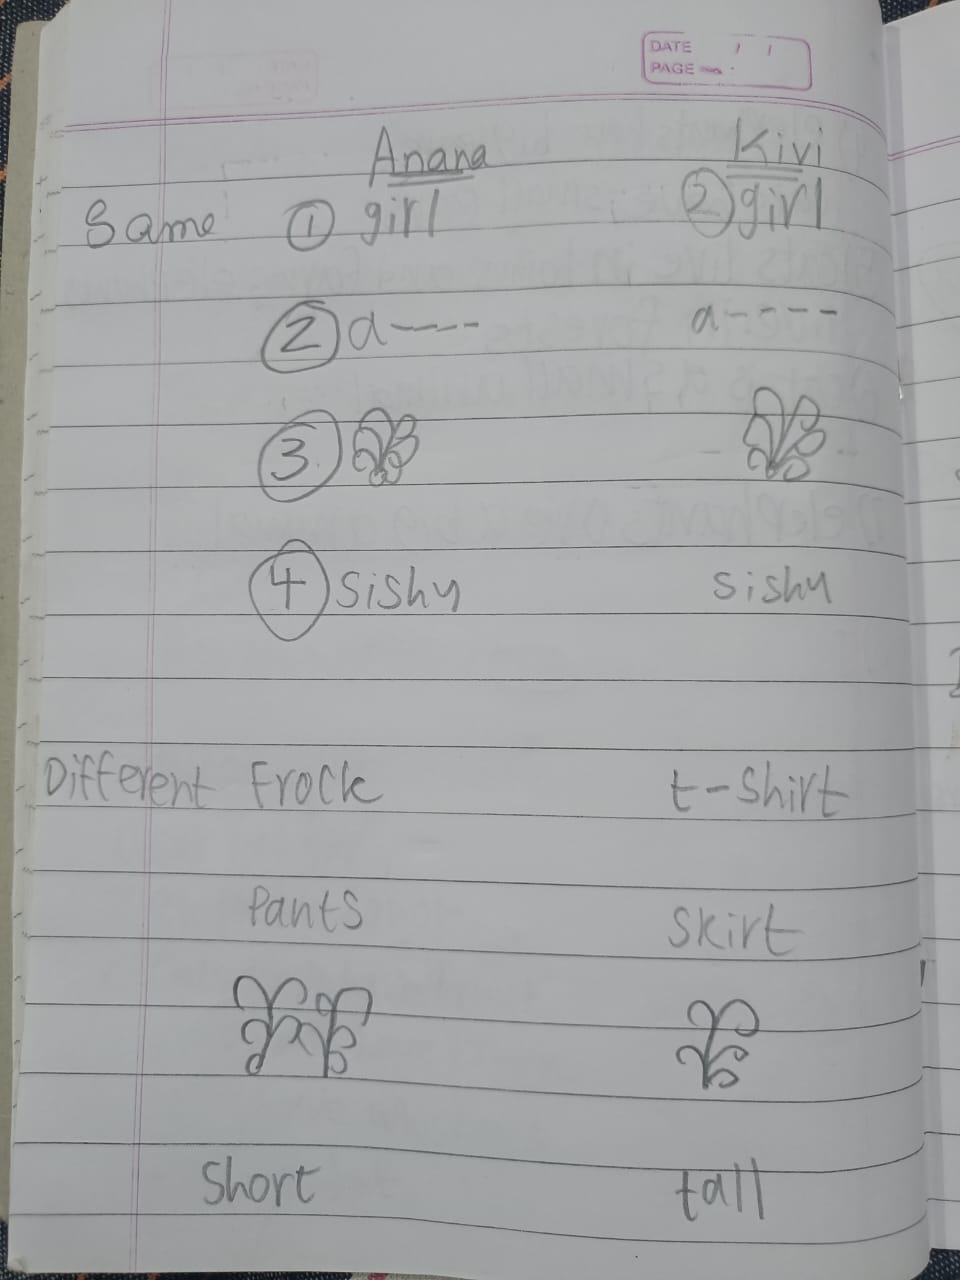 DATE / /
PAGE
Anana Kivi
Same ① girl ② girl
② a---- a----
③
④ sishy sishy
Different Frock t-shirt
Pants Skirt
Short tall